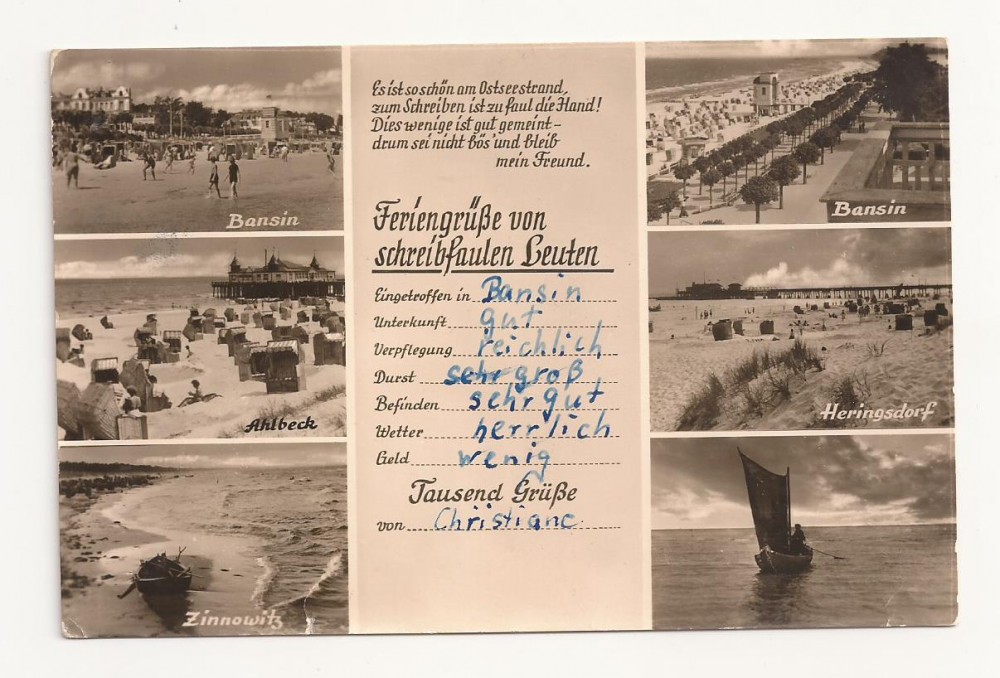 Es ist so schön am Ostseestrand,
zum Schreiben ist zu faul die Hand!
Dies wenige ist gut gemeint –
drum sei nicht bös' und bleib
mein Freund.
Feriengrüße von
schreibfaulen Leuten
Eingetroffen in Bansin
Unterkunft gut
Verpflegung reichlich
Durst sehr groß
Befinden sehr gut
Wetter herrlich
Geld wenig
Tausend Grüße
von Christiane
Bansin
Ahlbeck
Zinnowitz
Bansin
Heringsdorf